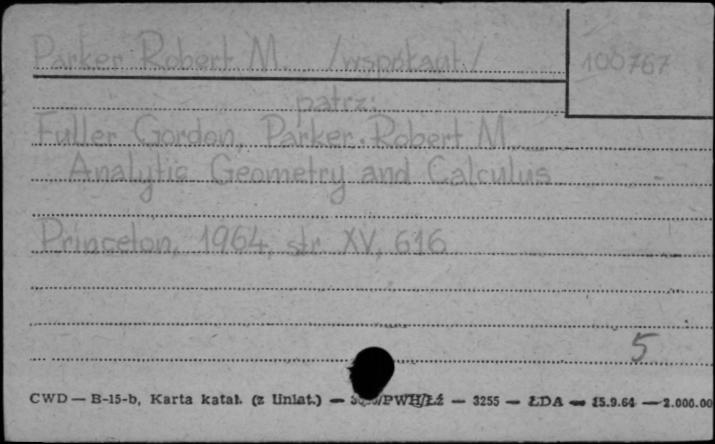 Parker Robert M. /współaut./
100767
patrz:
Fuller Gordon, Parker Robert M.
Analytic Geometry and Calculus
Princeton, 1964, str. XV, 616
5
CWD — B-15-b, Karta katal. (z liniat.) — /PWH/Łź — 3255 — ŁDA — 15.9.64 — 2.000.00